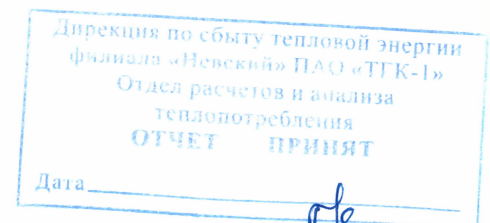 Дирекция по сбыту тепловой энергии
филиала «Невский» ПАО «ТГК-1»
Отдел расчетов и анализа
теплопотребления
ОТЧЕТ ПРИНЯТ
Дата